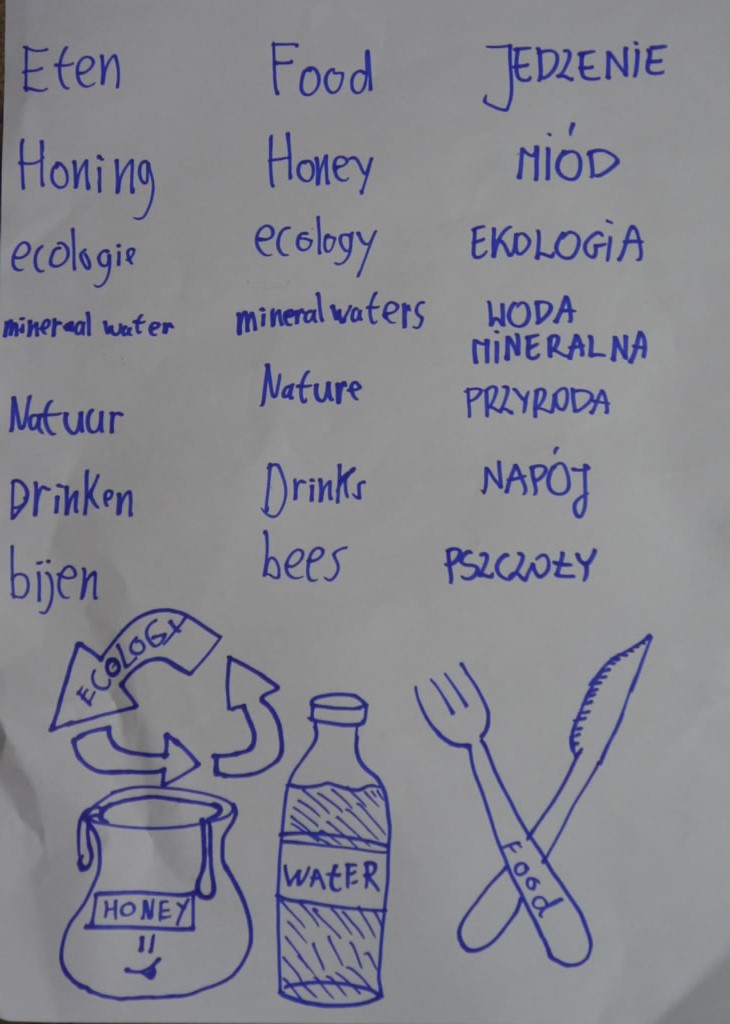 Eten Food JEDZENiE
Honing Honey MiÓD
ecologie ecology EKOLOGiA
mineraal water mineral waters WODA
MiNERALNA
Natuur Nature PRZYRODA
Drinken Drinks NAPÓJ
bijen bees PSZCZOŁY
ECOLOGY
WAtER
Food
HONEY